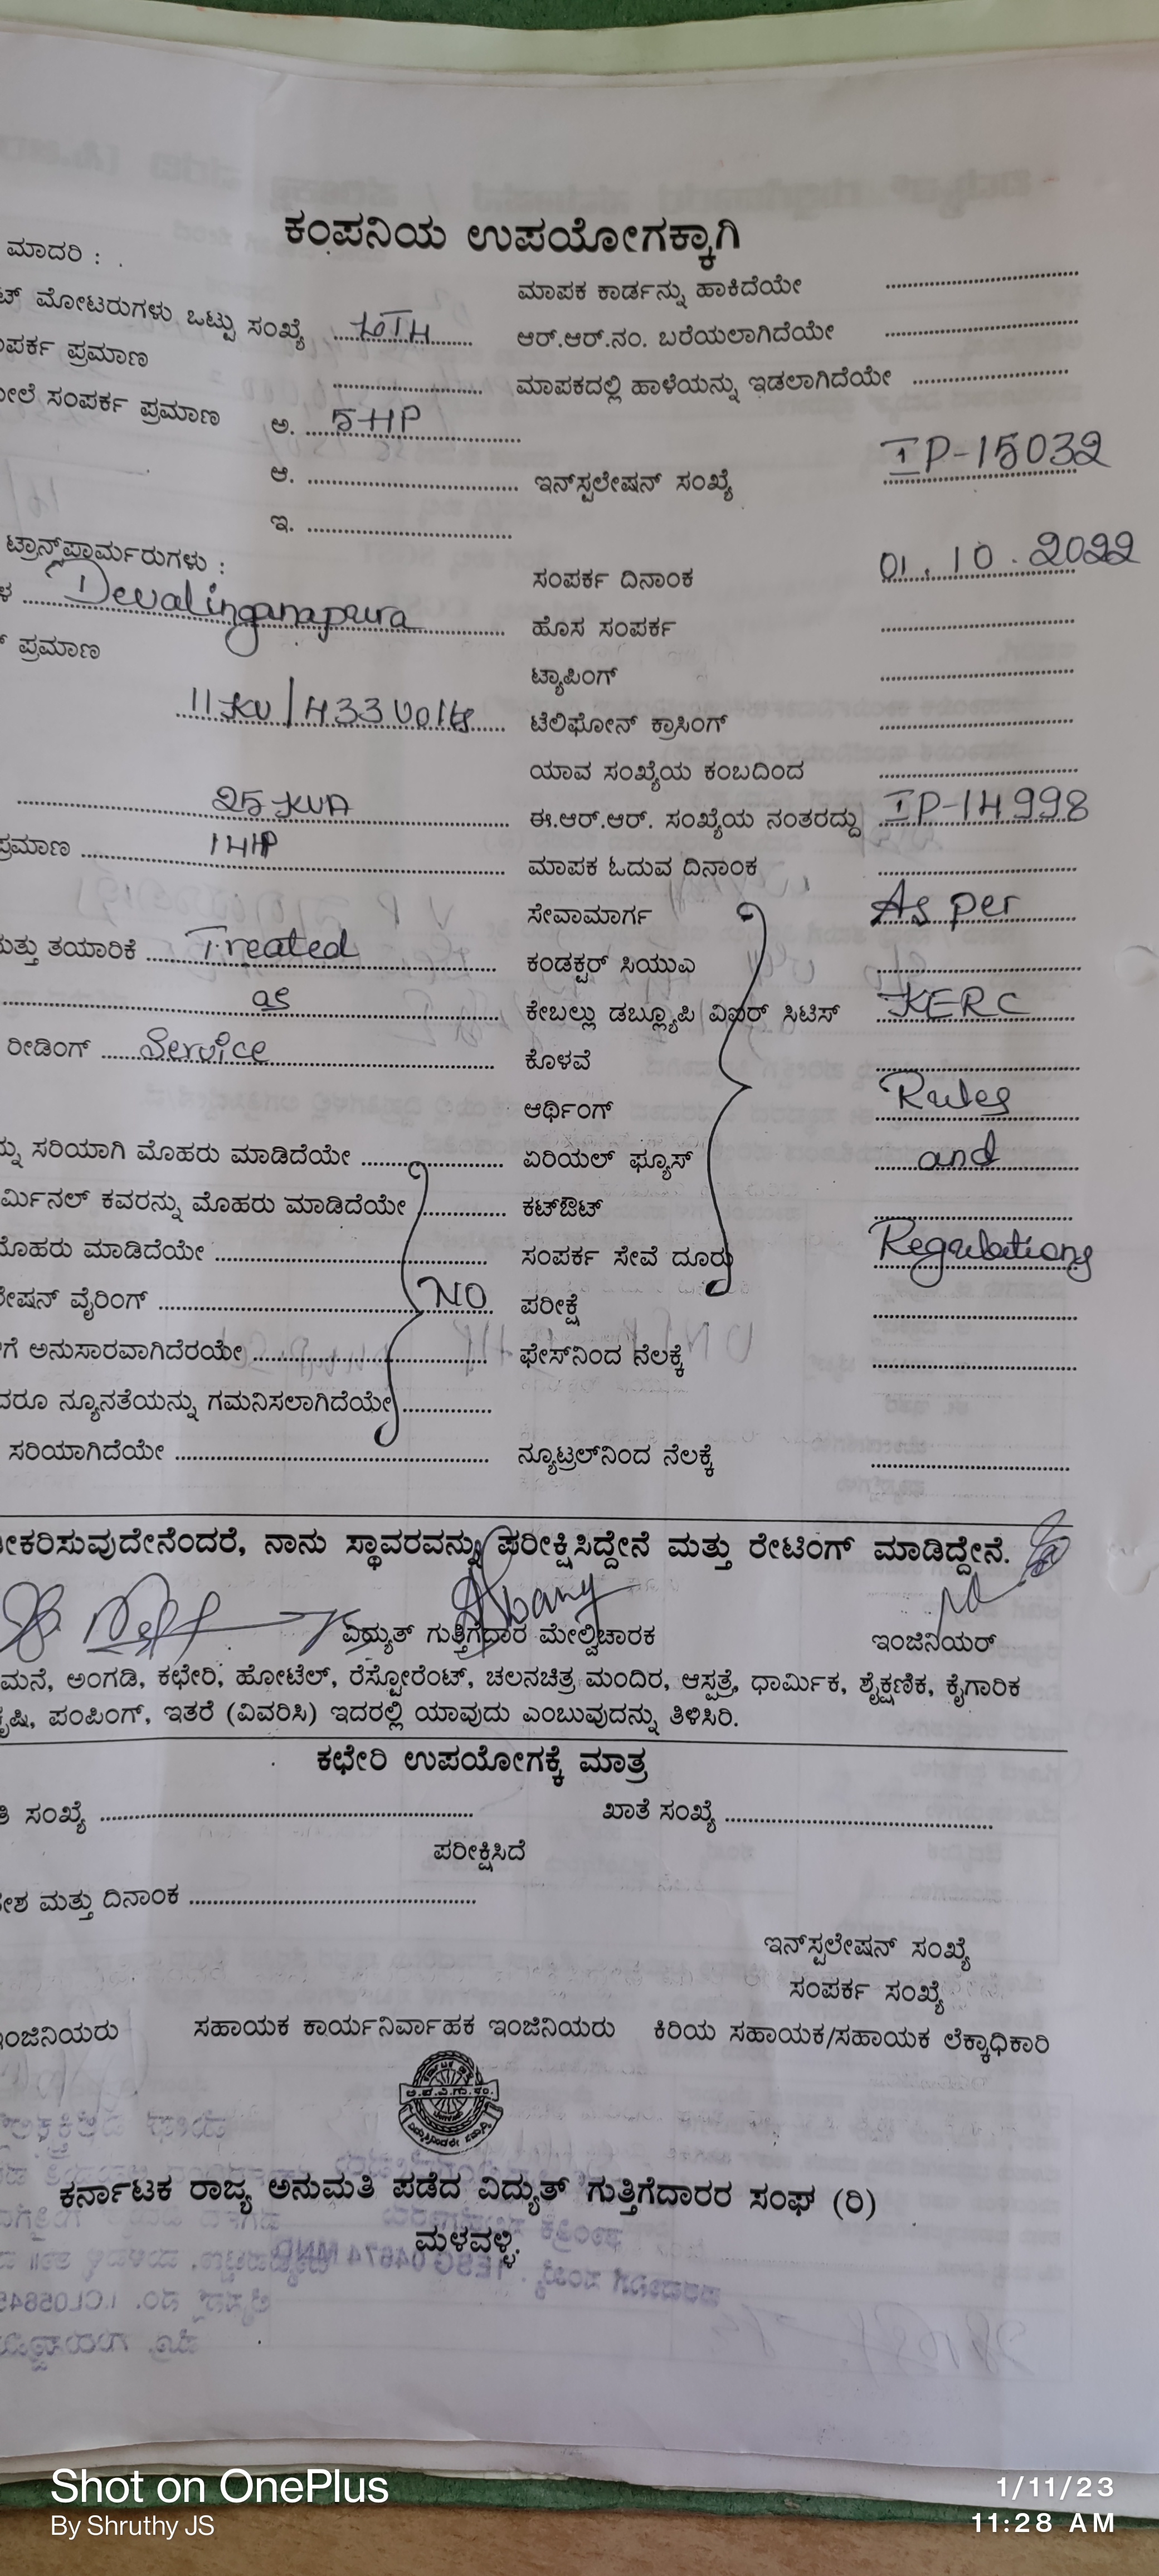 ಕಂಪನಿಯ ಉಪಯೋಗಕ್ಕಾಗಿ
ಮಾದರಿ :
ಮಾಪಕ ಕಾರ್ಡನ್ನು ಹಾಕಿದೆಯೇ
ಟ್ ಮೋಟರುಗಳು ಒಟ್ಟು ಸಂಖ್ಯೆ
ಆರ್.ಆರ್.ನಂ. ಬರೆಯಲಾಗಿದೆಯೇ
ಪರ್ಕ ಪ್ರಮಾಣ
ಮಾಪಕದಲ್ಲಿ ಹಾಳೆಯನ್ನು ಇಡಲಾಗಿದೆಯೇ
ಲೆ ಸಂಪರ್ಕ ಪ್ರಮಾಣ ಅ. 5HP
ಆ. ಇನ್‌ಸ್ಟಲೇಷನ್ ಸಂಖ್ಯೆ IP-15032
ಇ.
ಟ್ರಾನ್ಸ್‌ಫಾರ್ಮರುಗಳು :
ಸಂಪರ್ಕ ದಿನಾಂಕ 01.10.2022
ಳ Devalinganapura
ಹೊಸ ಸಂಪರ್ಕ
ಪ್ರಮಾಣ
ಟ್ಯಾಪಿಂಗ್
11KV/433 Volts ಟೆಲಿಫೋನ್ ಕ್ರಾಸಿಂಗ್
ಯಾವ ಸಂಖ್ಯೆಯ ಕಂಬದಿಂದ
25 KVA ಈ.ಆರ್.ಆರ್. ಸಂಖ್ಯೆಯ ನಂತರದ್ದು IP-14998
ಪ್ರಮಾಣ 14HP ಮಾಪಕ ಓದುವ ದಿನಾಂಕ
ಸೇವಾಮಾರ್ಗ As per
ಮತ್ತು ತಯಾರಿಕೆ Treated ಕಂಡಕ್ಟರ್ ಸಿಯುಎ
as ಕೇಬಲ್ಲು ಡಬ್ಲ್ಯೂಪಿ ವಿಐಆರ್ ಸಿಟಿಎಸ್ KERC
ರೀಡಿಂಗ್ Service ಕೊಳವೆ
ಆರ್ಥಿಂಗ್ Rules
ನ್ನು ಸರಿಯಾಗಿ ಮೊಹರು ಮಾಡಿದೆಯೇ ಏರಿಯಲ್ ಫ್ಯೂಸ್ and
ರ್ಮಿನಲ್ ಕವರನ್ನು ಮೊಹರು ಮಾಡಿದೆಯೇ ಕಟ್‌ಔಟ್
ಮೊಹರು ಮಾಡಿದೆಯೇ ಸಂಪರ್ಕ ಸೇವೆ ದೂರು Regulations
ಲೇಷನ್ ವೈರಿಂಗ್ NO ಪರೀಕ್ಷೆ
ಗೆ ಅನುಸಾರವಾಗಿದೆರಯೇ ಫೇಸ್‌ನಿಂದ ನೆಲಕ್ಕೆ
ದರೂ ನ್ಯೂನತೆಯನ್ನು ಗಮನಿಸಲಾಗಿದೆಯೇ
ಸರಿಯಾಗಿದೆಯೇ ನ್ಯೂಟ್ರಲ್‌ನಿಂದ ನೆಲಕ್ಕೆ
ೀಕರಿಸುವುದೇನೆಂದರೆ, ನಾನು ಸ್ಥಾವರವನ್ನು ಪರೀಕ್ಷಿಸಿದ್ದೇನೆ ಮತ್ತು ರೇಟಿಂಗ್ ಮಾಡಿದ್ದೇನೆ.
ವಿದ್ಯುತ್ ಗುತ್ತಿಗೆದಾರ ಮೇಲ್ವಿಚಾರಕ ಇಂಜಿನಿಯರ್
ಮನೆ, ಅಂಗಡಿ, ಕಛೇರಿ, ಹೋಟೆಲ್, ರೆಸ್ಟೋರೆಂಟ್, ಚಲನಚಿತ್ರ ಮಂದಿರ, ಆಸ್ಪತ್ರೆ, ಧಾರ್ಮಿಕ, ಶೈಕ್ಷಣಿಕ, ಕೈಗಾರಿಕ
ಕೃಷಿ, ಪಂಪಿಂಗ್, ಇತರೆ (ವಿವರಿಸಿ) ಇದರಲ್ಲಿ ಯಾವುದು ಎಂಬುವುದನ್ನು ತಿಳಿಸಿರಿ.
ಕಛೇರಿ ಉಪಯೋಗಕ್ಕೆ ಮಾತ್ರ
ತಿ ಸಂಖ್ಯೆ ಖಾತೆ ಸಂಖ್ಯೆ
ಪರೀಕ್ಷಿಸಿದೆ
ೇಶ ಮತ್ತು ದಿನಾಂಕ
ಇನ್‌ಸ್ಟಲೇಷನ್ ಸಂಖ್ಯೆ
ಸಂಪರ್ಕ ಸಂಖ್ಯೆ
ಇಂಜಿನಿಯರು ಸಹಾಯಕ ಕಾರ್ಯನಿರ್ವಾಹಕ ಇಂಜಿನಿಯರು ಕಿರಿಯ ಸಹಾಯಕ/ಸಹಾಯಕ ಲೆಕ್ಕಾಧಿಕಾರಿ
ಕರ್ನಾಟಕ ರಾಜ್ಯ ಅನುಮತಿ ಪಡೆದ ವಿದ್ಯುತ್ ಗುತ್ತಿಗೆದಾರರ ಸಂಘ (ರಿ)
ಮಳವಳ್ಳಿ.
Shot on OnePlus
By Shruthy JS
1/11/23
11:28 AM